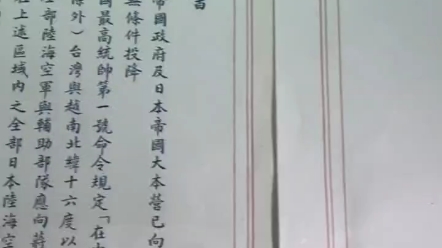 帝國政府及日本帝國大本營已向
無條件投降
國最高統帥第一號命令規定「在
除外)台灣與越南北緯十六度以
部陸海空軍與輔助部隊應向蔣
上述區域內之全部日本陸海空